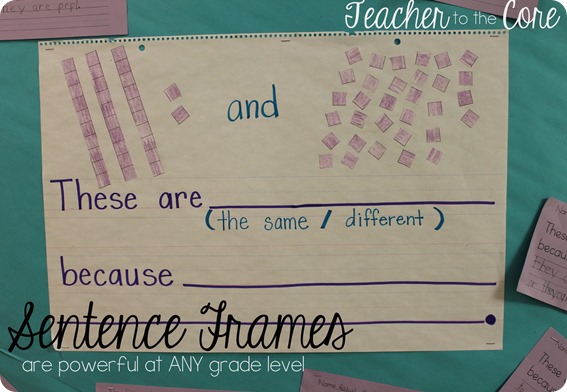 They are pepl.
Teacher to the Core
and
These are
(the same / different)
because
Sentence Frames
are powerful at ANY grade level
These
because
They
These
because